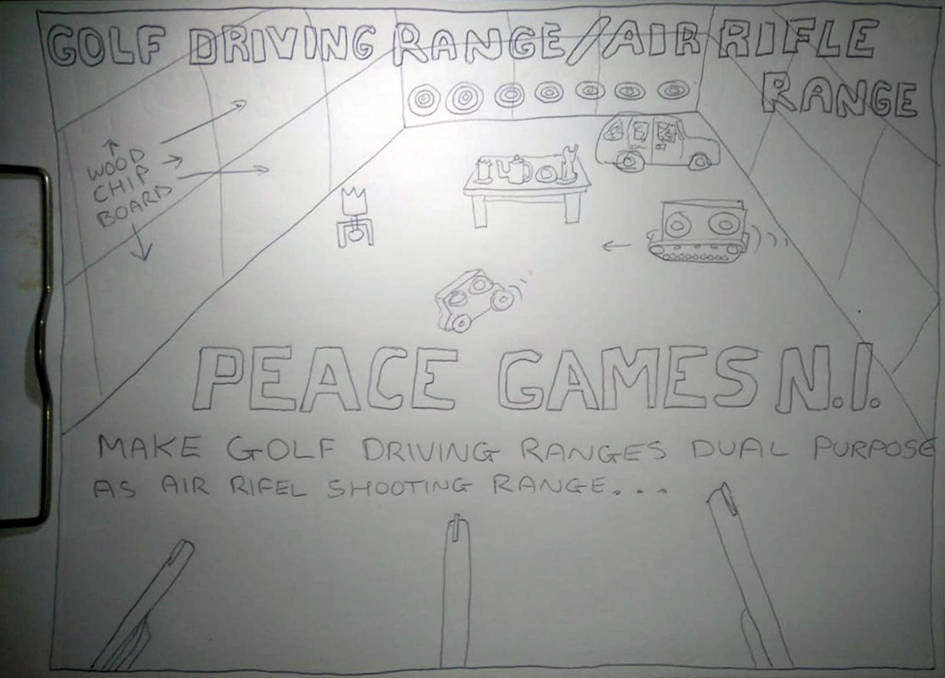 GOLF DRIVING RANGE/AIR RIFLE
RANGE
WOOD
CHIP
BOARD
PEACE GAMES N.I.
MAKE GOLF DRIVING RANGES DUAL PURPOSE
AS AIR RIFEL SHOOTING RANGE...